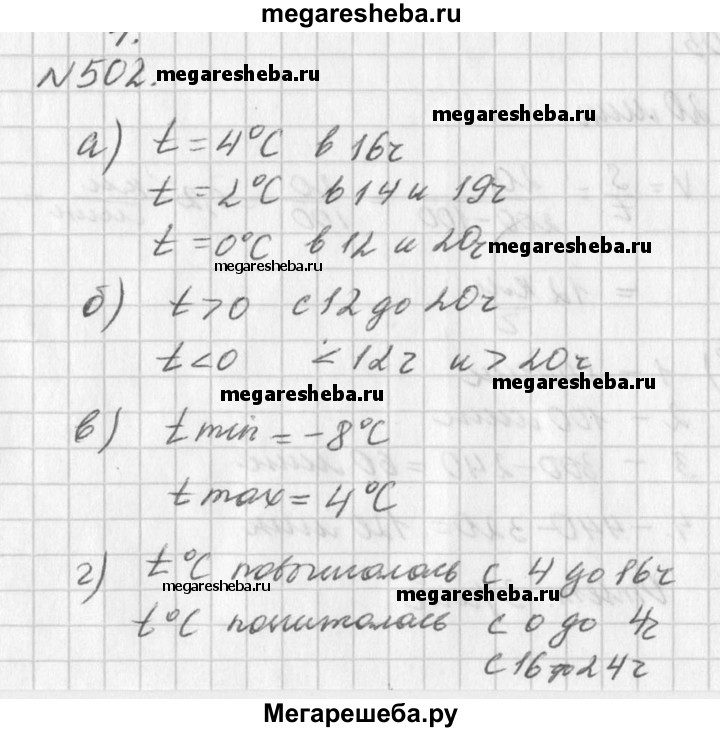 megaresheba.ru
N502. megaresheba.ru
megaresheba.ru
а) t = 4°C в 16ч
t = 2°C в 14 и 19ч
t = 0°C в 12 и 20ч megaresheba.ru
megaresheba.ru
б) t > 0 с 12 до 20ч
t < 0 < 12ч и > 20ч
megaresheba.ru
megaresheba.ru
в) t min = -8°C
t max = 4°C
г) t°C повышалась с 4 до 16ч
megaresheba.ru
megaresheba.ru
t°C понижалась с 0 до 4ч
с 16 до 24ч
Мегарешеба.ру